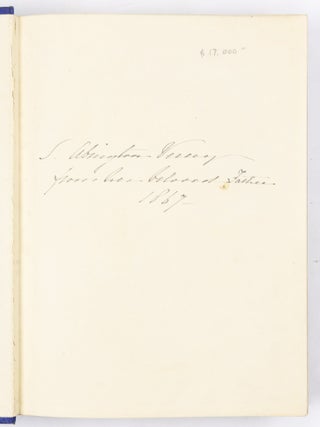 $ 17,000
S Abington
from her beloved Father
1867